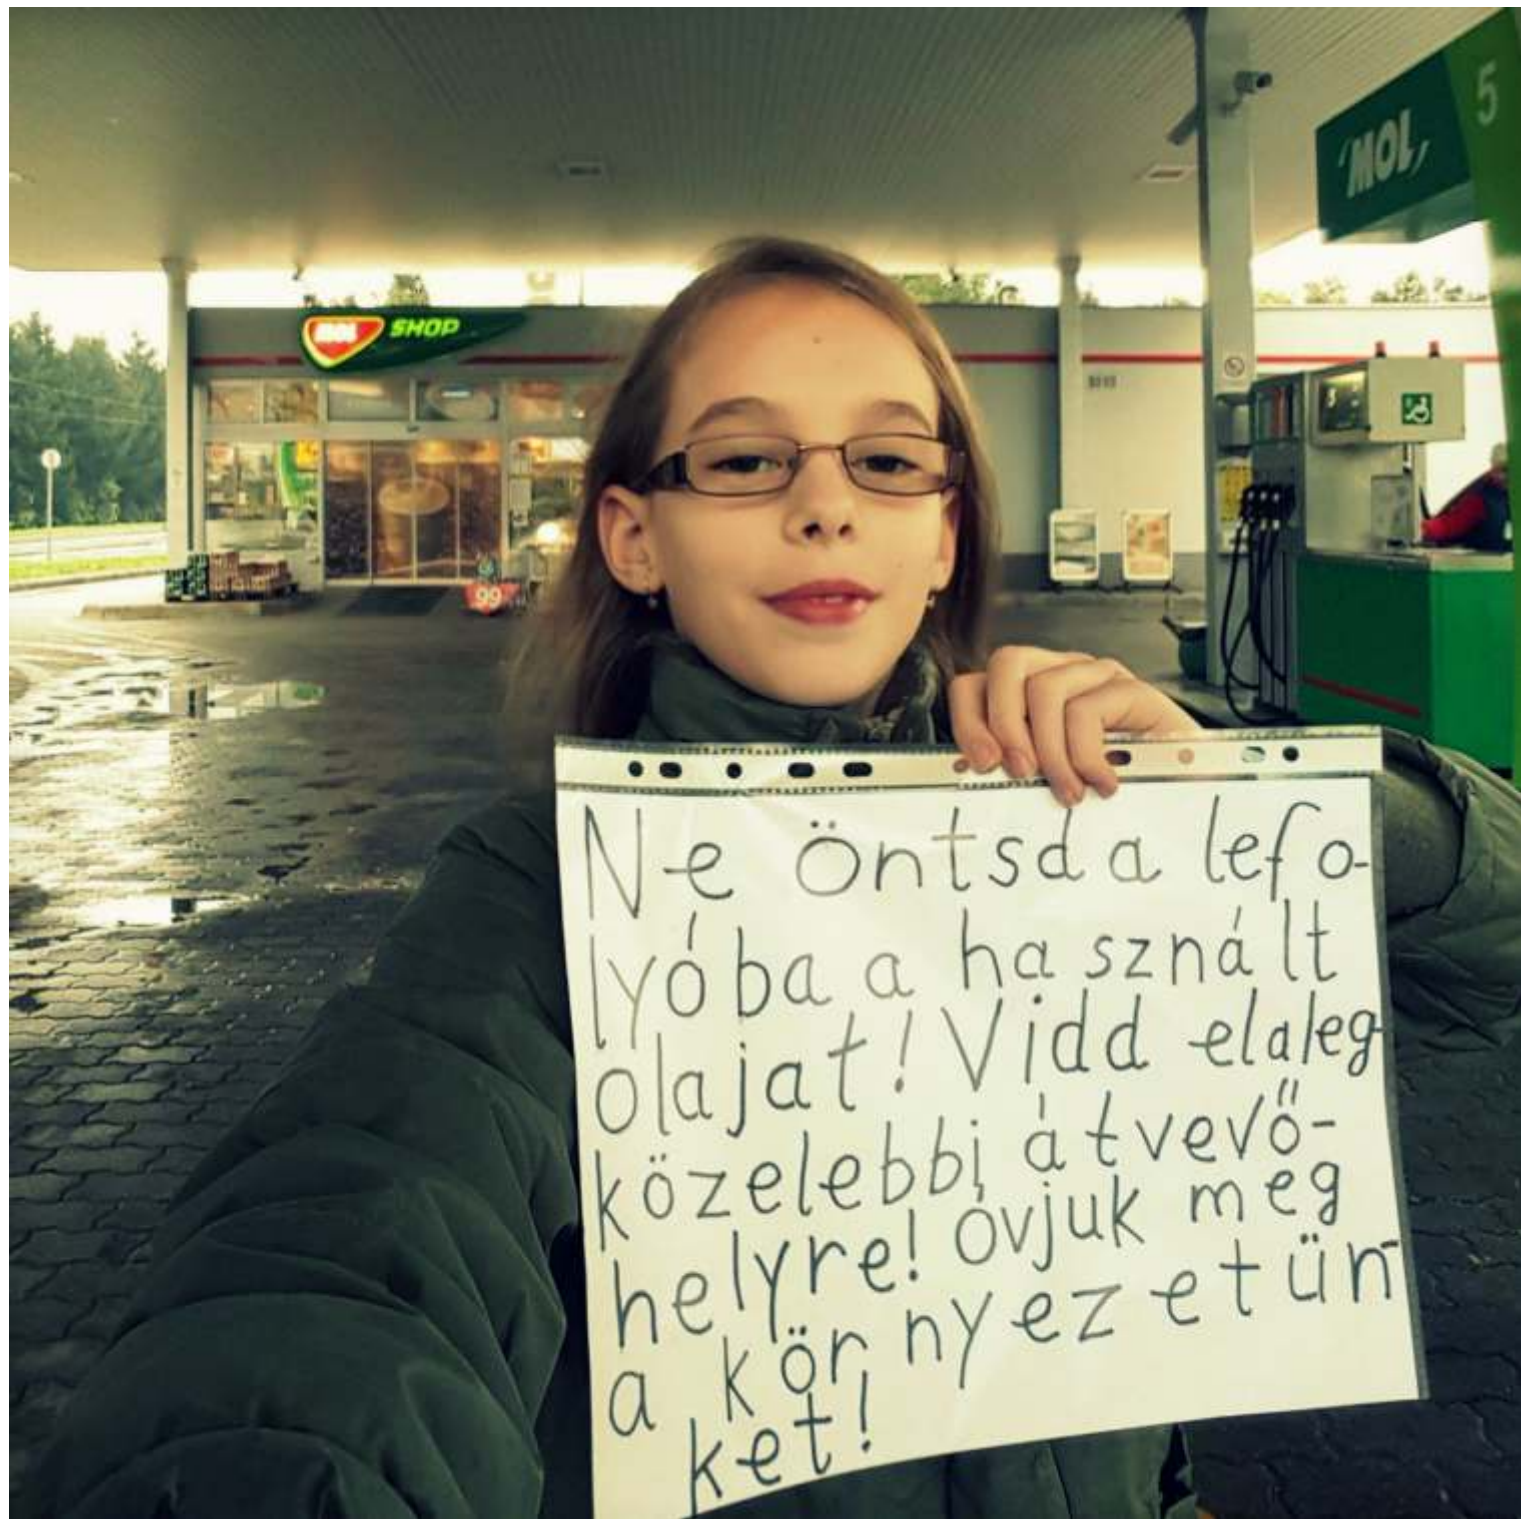 MOL
5
MOL SHOP
99
Ne öntsd a lefo-
lyóba a használt
olajat! Vidd el a leg
közelebbi átvevő-
helyre! Óvjuk meg
a környezetün-
ket!